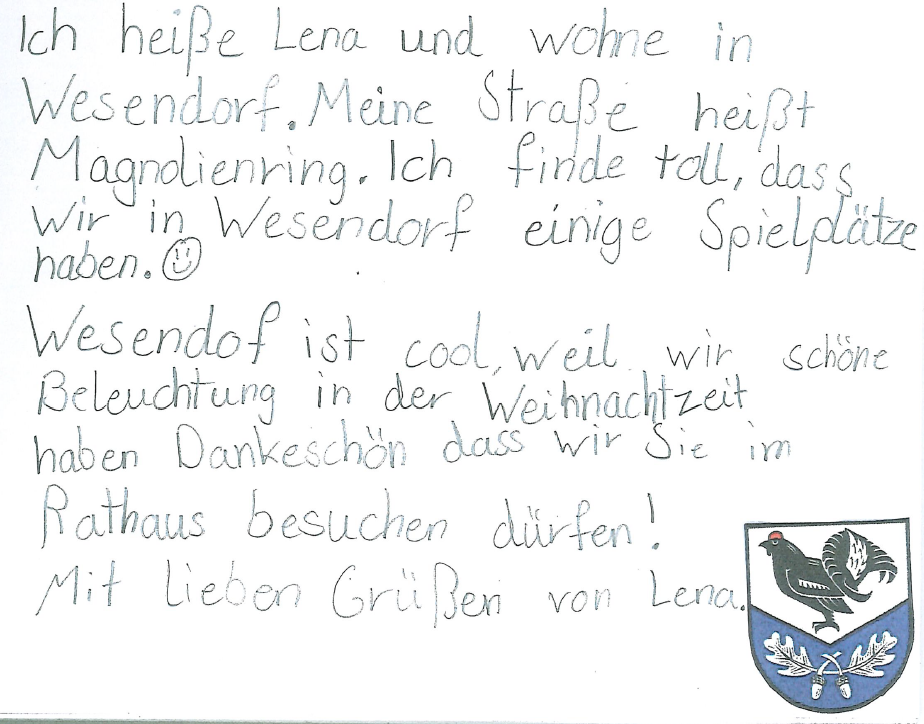 Ich heiße Lena und wohne in
Wesendorf. Meine Straße heißt
Magnolienring. Ich finde toll, dass
wir in Wesendorf einige Spielplätze
haben. ☺
Wesendof ist cool, weil wir schöne
Beleuchtung in der Weihnachtzeit
haben Dankeschön dass wir Sie im
Rathaus besuchen dürfen!
Mit lieben Grüßen von Lena.